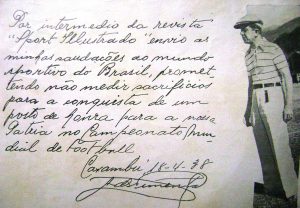 Por intermedio da revista
"Sport Illustrado" envio as
minhas saudações ao mundo
sportivo do Brasil, promet-
tendo não medir sacrificios
para a conquista de um
posto de honra para a nossa
Patria no Campeonato Mun-
dial de Football
Caxambú 18-4-38